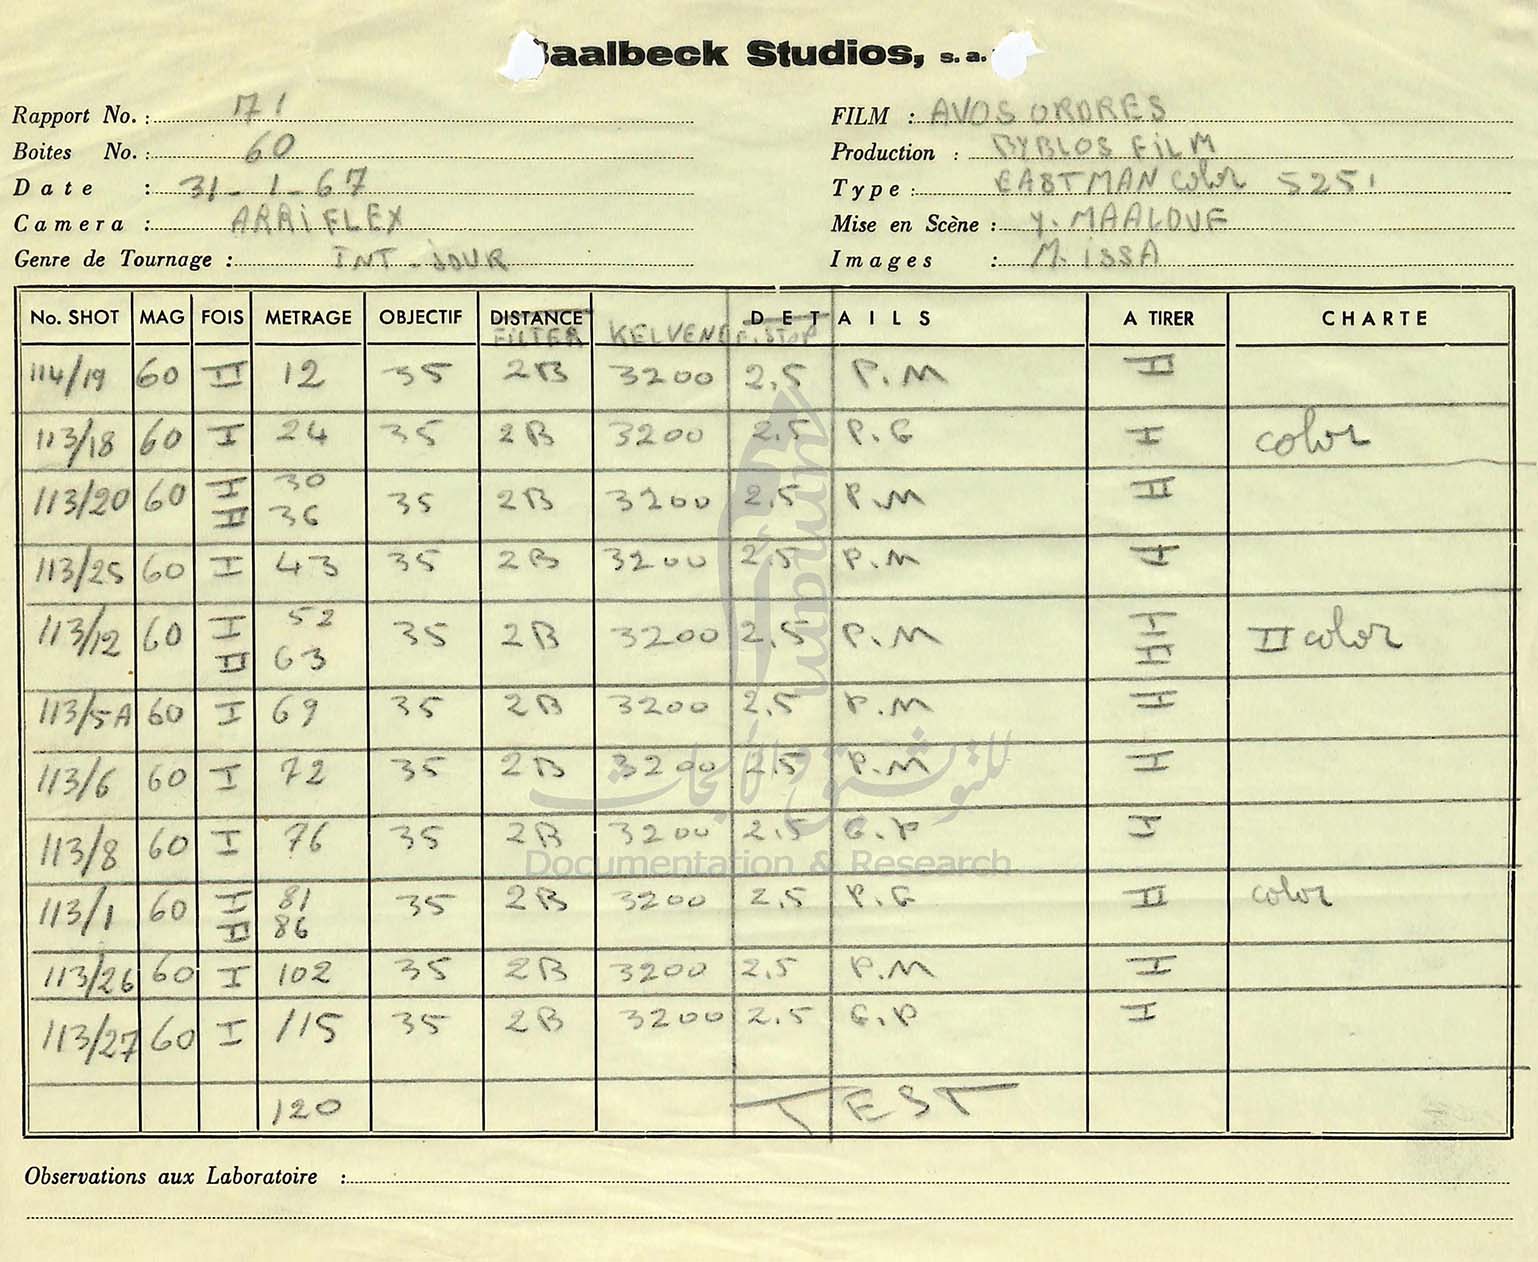 Baalbeck Studios, s.a.
Rapport No. : 71
Boites No. : 60
Date : 31-1-67
Camera : ARRIFLEX
Genre de Tournage : INT-JOUR
FILM : AVOS ORDRES
Production : BYBLOS FILM
Type : EASTMAN Color 5251
Mise en Scène : Y. MAALOUF
Images : M. ISSA
No. SHOT MAG FOIS METRAGE OBJECTIF DISTANCE DETAILS A TIRER CHARTE
FILTER KELVENE F.STOP
114/19 60 II 12 35 2B 3200 2.5 P.M II
113/18 60 I 24 35 2B 3200 2.5 P.G I color
113/20 60 I 30 35 2B 3200 2.5 P.M II
II 36
113/25 60 I 43 35 2B 3200 2.5 P.M I
113/12 60 I 52 35 2B 3200 2.5 P.M I II color
II 63 II
113/5A 60 I 69 35 2B 3200 2.5 P.M I
113/6 60 I 72 35 2B 3200 2.5 P.M I
113/8 60 I 76 35 2B 3200 2.5 G.P I
113/1 60 I 81 35 2B 3200 2.5 P.G II color
II 86
113/26 60 I 102 35 2B 3200 2.5 P.M I
113/27 60 I 115 35 2B 3200 2.5 G.P I
120 TEST
Observations aux Laboratoire :
umam
للتوثيق والأبحاث
Documentation & Research